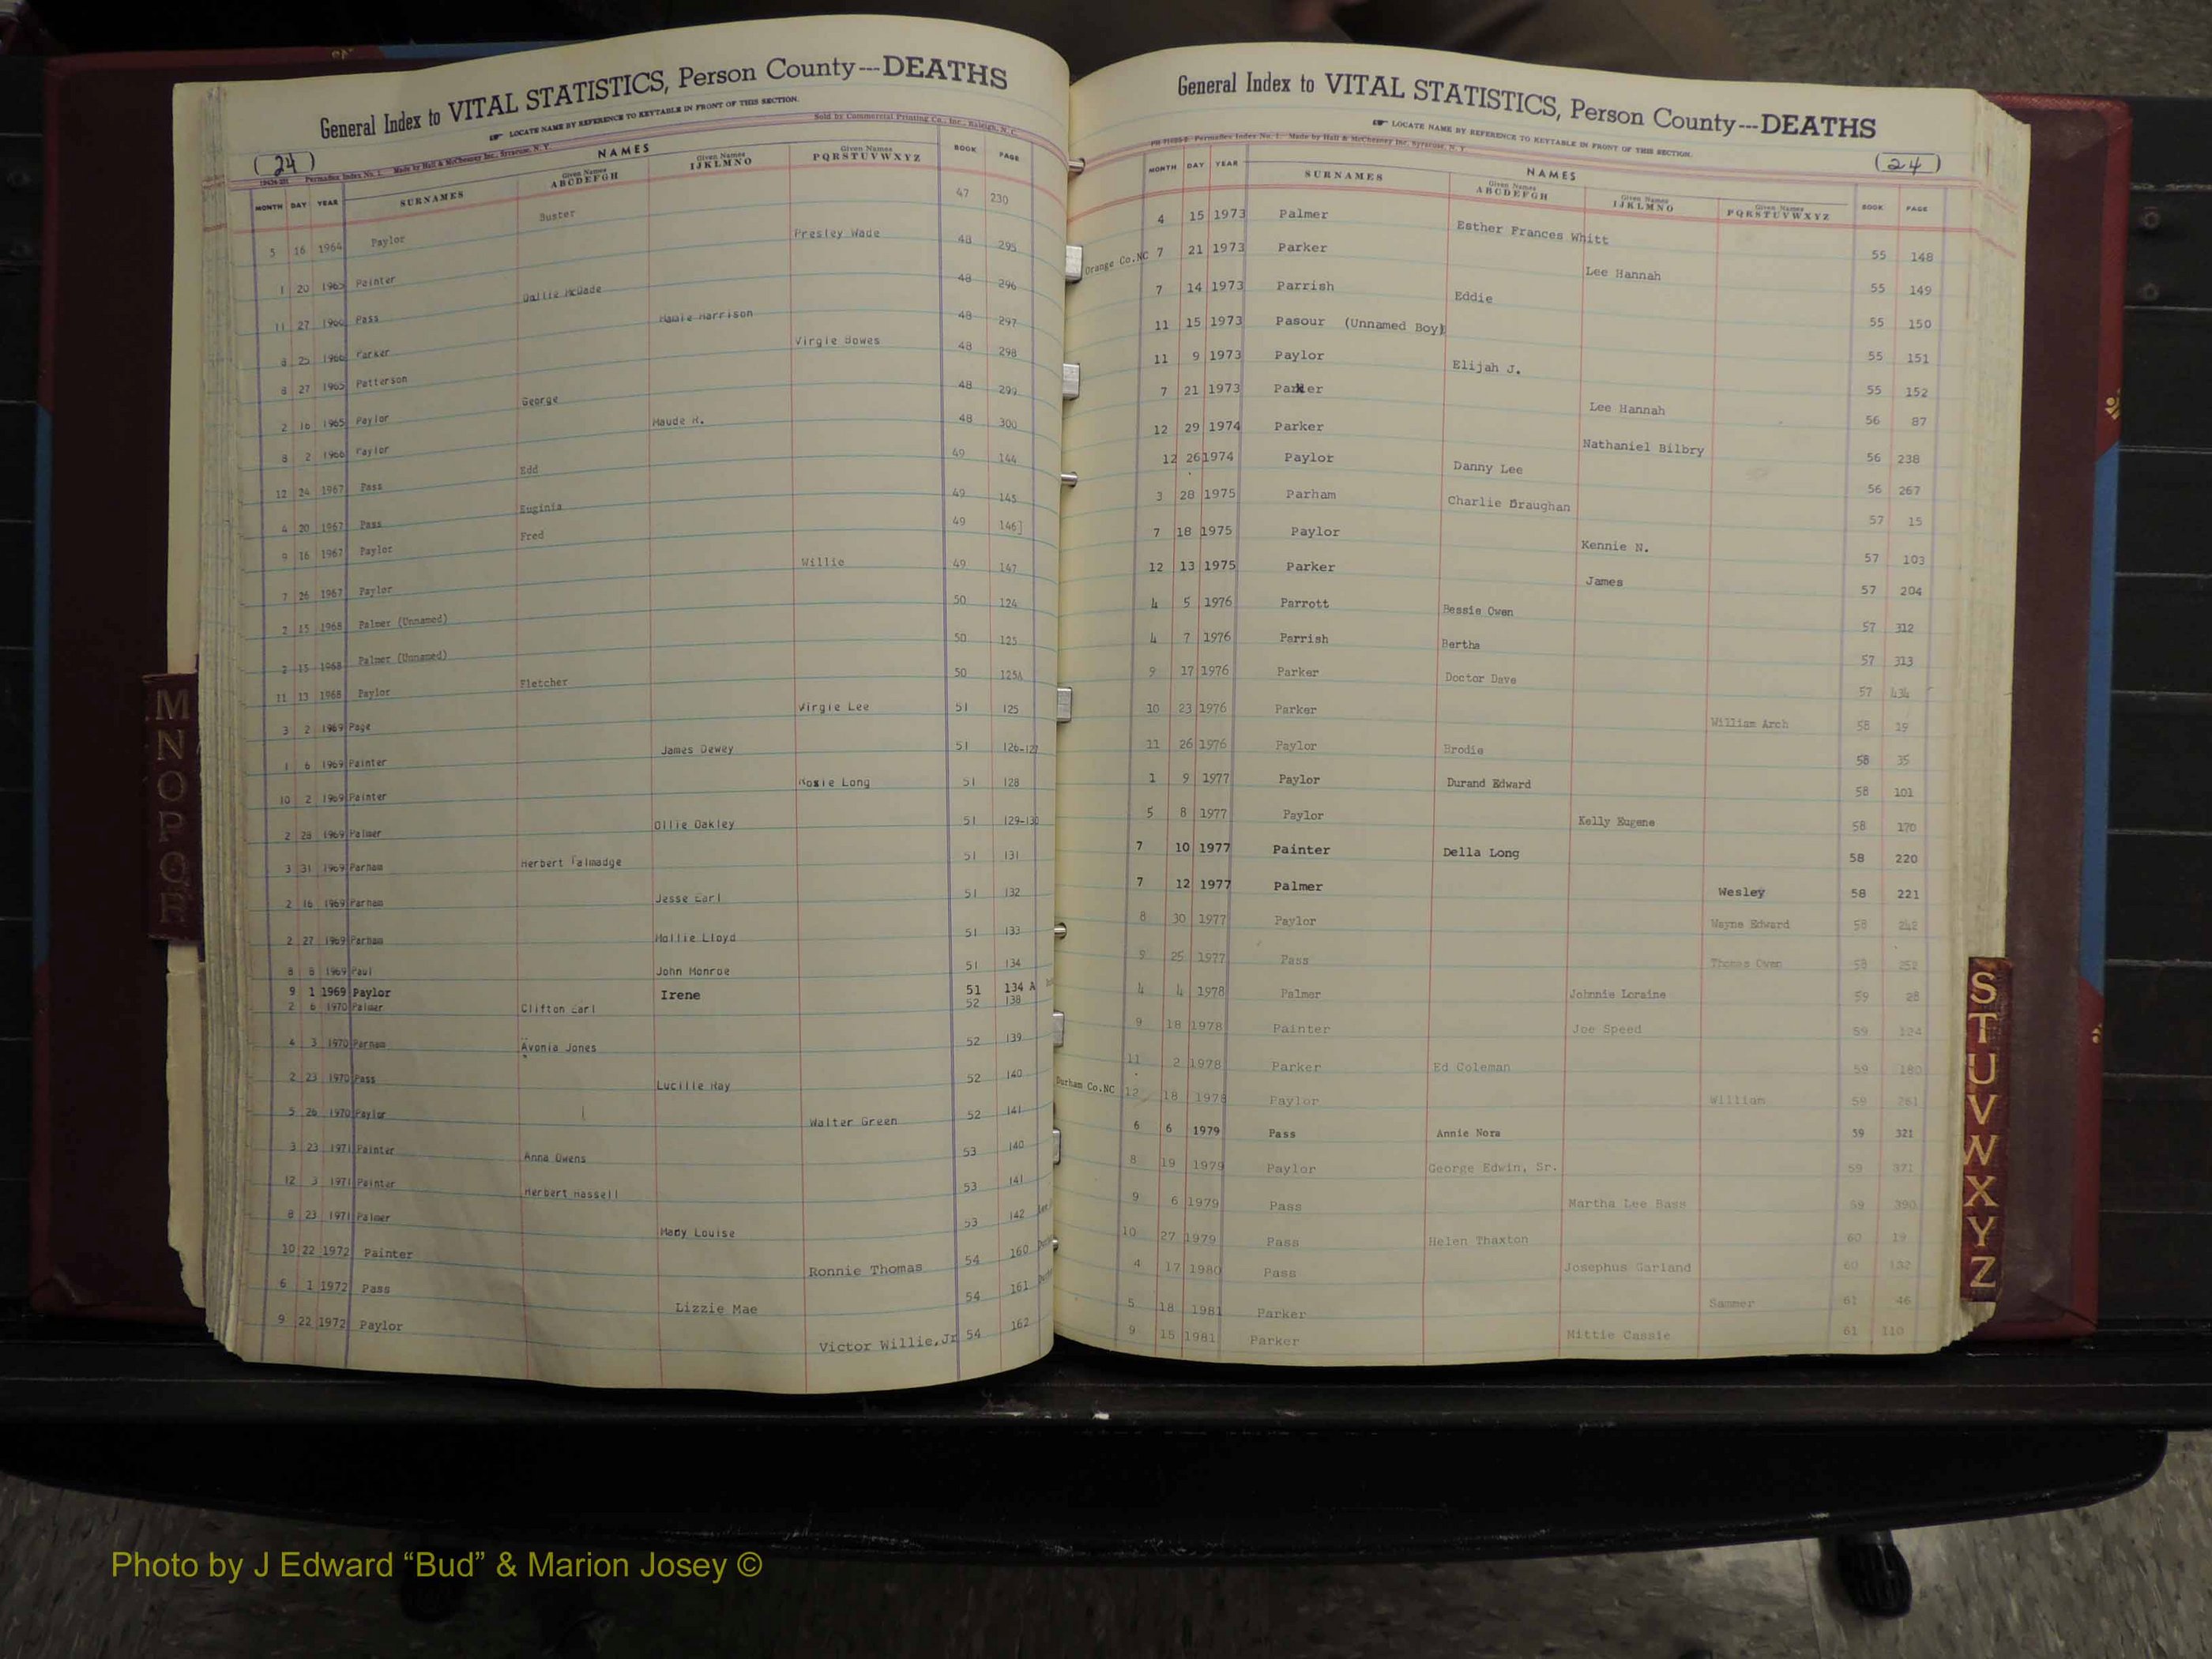 General Index to VITAL STATISTICS, Person County---DEATHS
LOCATE NAME BY REFERENCE TO KEYTABLE IN FRONT OF THIS SECTION.
Sold by Commercial Printing Co., Inc., Raleigh, N. C.
(24)
Permaflex Index No. 1. Made by Hall & McChesney Inc., Syracuse, N. Y.
NAMES
MONTH DAY YEAR SURNAMES Given Names ABCDEFGH Given Names IJKLMNO Given Names PQRSTUVWXYZ BOOK PAGE
5 16 1964 Paylor Buster 47 230
1 20 1965 Painter Presley Wade 48 295
11 27 1966 Pass Dallie McDade 48 296
8 25 1966 Parker Mamie Harrison 48 297
8 27 1965 Patterson Virgie Bowes 48 298
2 16 1965 Paylor George 48 299
8 2 1966 Paylor Maude R. 48 300
12 24 1967 Pass Edd 49 144
4 20 1967 Pass Euginia 49 145
9 16 1967 Paylor Fred 49 146]
7 26 1967 Paylor Willie 49 147
2 15 1968 Palmer (Unnamed) 50 124
2 15 1968 Palmer (Unnamed) 50 125
11 13 1968 Paylor Fletcher 50 125A
3 2 1969 Page Virgie Lee 51 125
1 6 1969 Painter James Dewey 51 126-127
10 2 1969 Painter Roxie Long 51 128
2 28 1969 Palmer Ollie Oakley 51 129-130
3 31 1969 Parham Herbert Talmadge 51 131
2 16 1969 Parham Jesse Earl 51 132
2 27 1969 Parham Mollie Lloyd 51 133
8 8 1969 Paul John Monroe 51 134
9 1 1969 Paylor Irene 51 134 A
2 6 1970 Palmer Clifton Earl 52 138
4 3 1970 Parham Avonia Jones 52 139
2 23 1970 Pass Lucille Ray 52 140
5 26 1970 Paylor Walter Green 52 141
3 23 1971 Painter Anna Owens 53 140
12 3 1971 Painter Herbert Hassell 53 141
8 23 1971 Palmer Mary Louise 53 142
10 22 1972 Painter Ronnie Thomas 54 160
6 1 1972 Pass Lizzie Mae 54 161
9 22 1972 Paylor Victor Willie,Jr 54 162
M
N
O
P
Q
R
General Index to VITAL STATISTICS, Person County---DEATHS
LOCATE NAME BY REFERENCE TO KEYTABLE IN FRONT OF THIS SECTION.
Permaflex Index No. 1. Made by Hall & McChesney Inc, Syracuse, N. Y.
(24)
NAMES
MONTH DAY YEAR SURNAMES Given Names ABCDEFGH Given Names IJKLMNO Given Names PQRSTUVWXYZ BOOK PAGE
4 15 1973 Palmer Esther Frances Whitt 55 148
Orange Co.NC 7 21 1973 Parker Lee Hannah 55 149
7 14 1973 Parrish Eddie 55 150
11 15 1973 Pasour (Unnamed Boy) 55 151
11 9 1973 Paylor Elijah J. 55 152
7 21 1973 Parker Lee Hannah 56 87
12 29 1974 Parker Nathaniel Bilbry 56 238
12 26 1974 Paylor Danny Lee 56 267
3 28 1975 Parham Charlie Draughan 57 15
7 18 1975 Paylor Kennie N. 57 103
12 13 1975 Parker James 57 204
4 5 1976 Parrott Bessie Owen 57 312
4 7 1976 Parrish Bertha 57 313
9 17 1976 Parker Doctor Dave 57 434
10 23 1976 Parker William Arch 58 19
11 26 1976 Paylor Brodie 58 35
1 9 1977 Paylor Durand Edward 58 101
5 8 1977 Paylor Kelly Eugene 58 170
7 10 1977 Painter Della Long 58 220
7 12 1977 Palmer Wesley 58 221
8 30 1977 Paylor Wayne Edward 58 248
9 25 1977 Pass Thomas Owen 58 258
4 4 1978 Palmer Johnnie Loraine 59 28
9 18 1978 Painter Joe Speed 59 124
11 2 1978 Parker Ed Coleman 59 180
Durham Co.NC 12 18 1978 Paylor William 59 261
6 6 1979 Pass Annie Nora 59 321
8 19 1979 Paylor George Edwin, Sr. 59 371
9 6 1979 Pass Martha Lee Bass 59 390
10 27 1979 Pass Helen Thaxton 60 19
4 17 1980 Pass Josephus Garland 60 132
5 18 1981 Parker Sammer 61 46
9 15 1981 Parker Mittie Cassie 61 110
S
T
U
V
W
X
Y
Z
Photo by J Edward “Bud” & Marion Josey ©